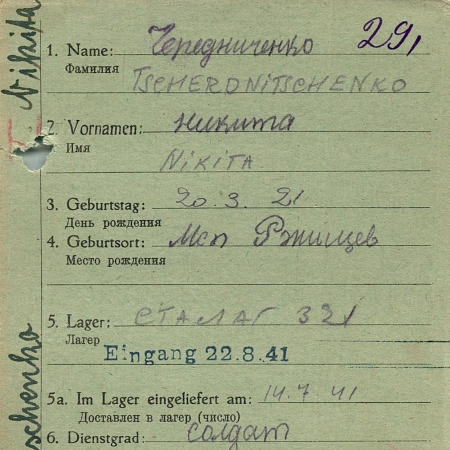 1. Name: Чередниченко 29,
Фамилия TSCHERDNiTSCHENKO
2. Vornamen: никита
Имя NiKiTA
3. Geburtstag: 20. 3. 21
День рождения
4. Geburtsort: Мсп Ржищев
Место рождения
5. Lager: СТАЛАГ 321
Лагер
Eingang 22.8.41
5a. Im Lager eingeliefert am: 14.7.41
Доставлен в лагер (число)
6. Dienstgrad: солдат
Nikita
schenko